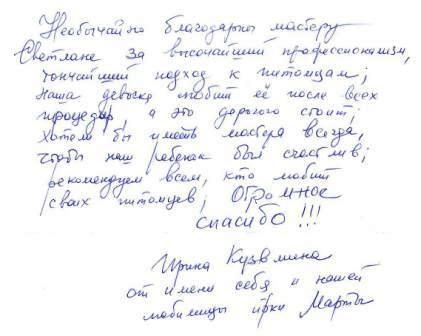 Необычайно благодарны мастеру
Светлане за высочайший профессионализм,
тончайший подход к питомцам;
наша девочка любит её после всех
процедур, а это дорогого стоит;
Хотели бы иметь мастера всегда,
чтобы наш ребенок был счастлив;
рекомендуем всем, кто любит
своих питомцев; Огромное
спасибо!!!
Ирина Кузьмина
от имени себя и нашей
любимицы йорки Марты